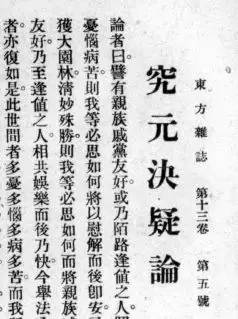 東方雜誌 第十三卷 第五號
究元決疑論
論者曰譬有親族戚黨友好或乃陌路逢值之人
憂惱病苦則我等必思如何將以慰解而後卽安
獲大園林清妙殊勝則我等必思如何而將親族
友好乃至逢值之人相共娛樂而後乃快今舉法
者亦復如是此世間者多憂多惱多病多苦而我